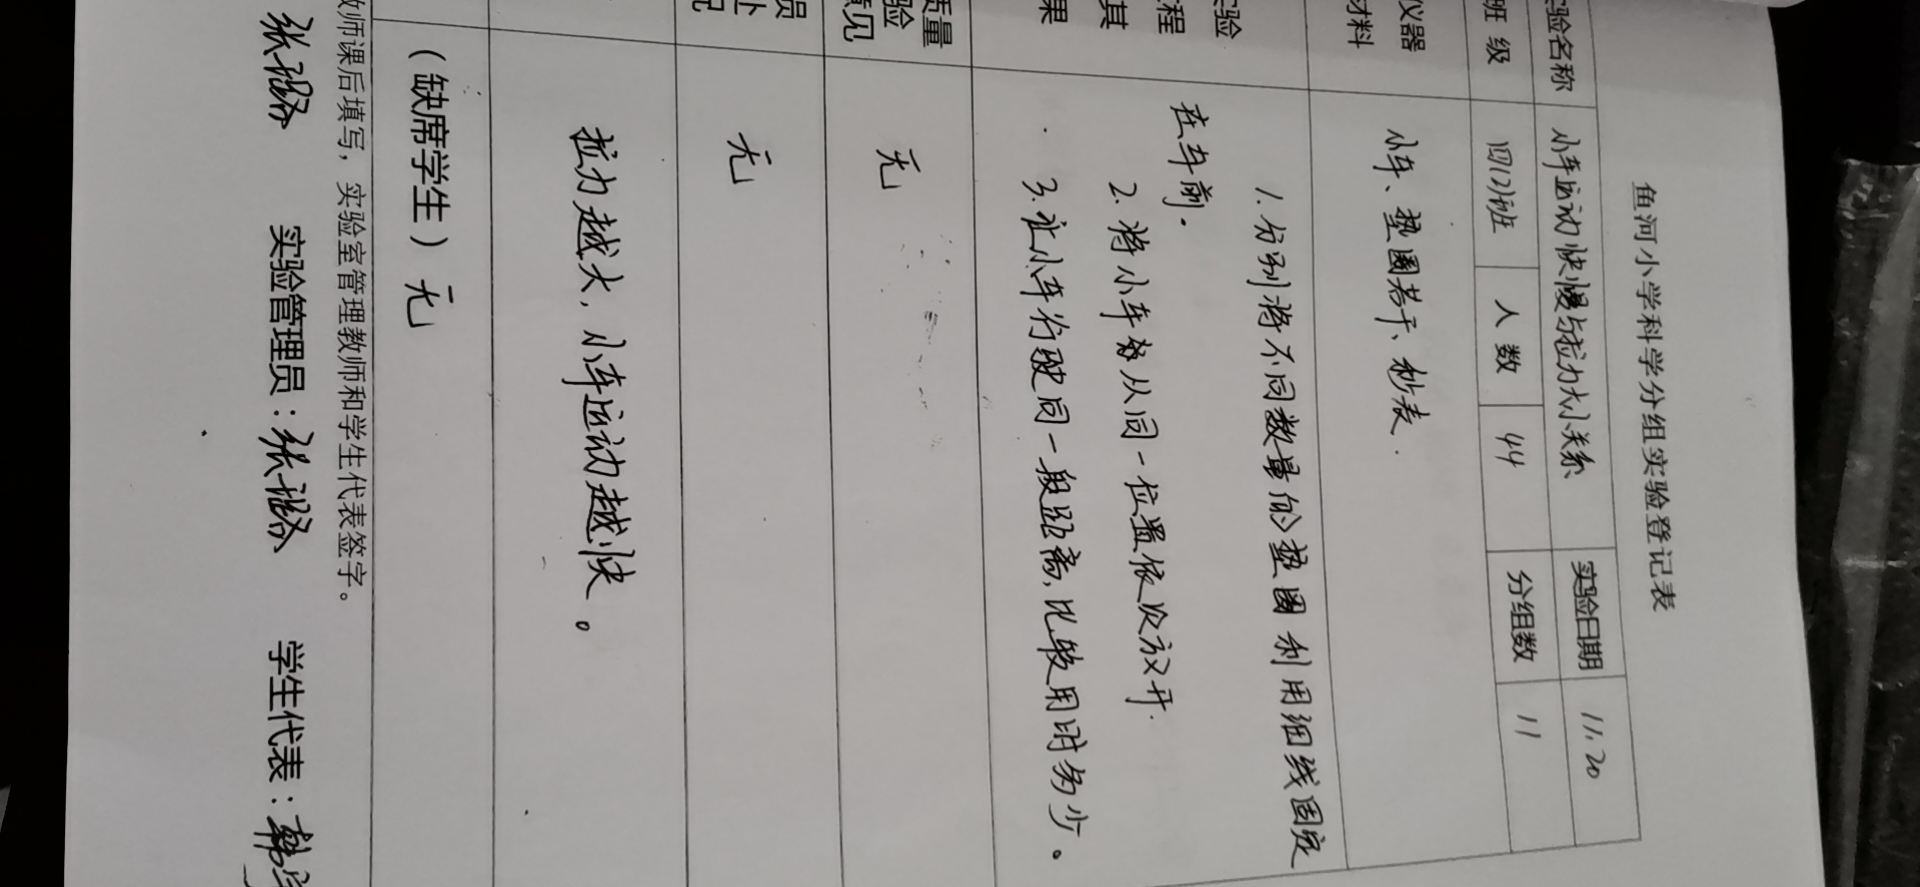 鱼河小学科学分组实验登记表
验名称 小车运动快慢与拉力大小关系 实验日期 11.20
班 级 四(2)班 人 数 44 分组数 11
仪器
材料
小车、垫圈若干、秒表.
验
程
其
果
1.分别将不同数量的垫圈利用细线固定
在车前.
2.将小车每从同一位置依次放开.
3.让小车行驶同一段路离,比较用时多少。
质量
验
意见
无
员
补
况
无
拉力越大,小车运动越快。
(缺席学生)无
教师课后填写,实验室管理教师和学生代表签字。
张璐 实验管理员:张璐 学生代表:韩